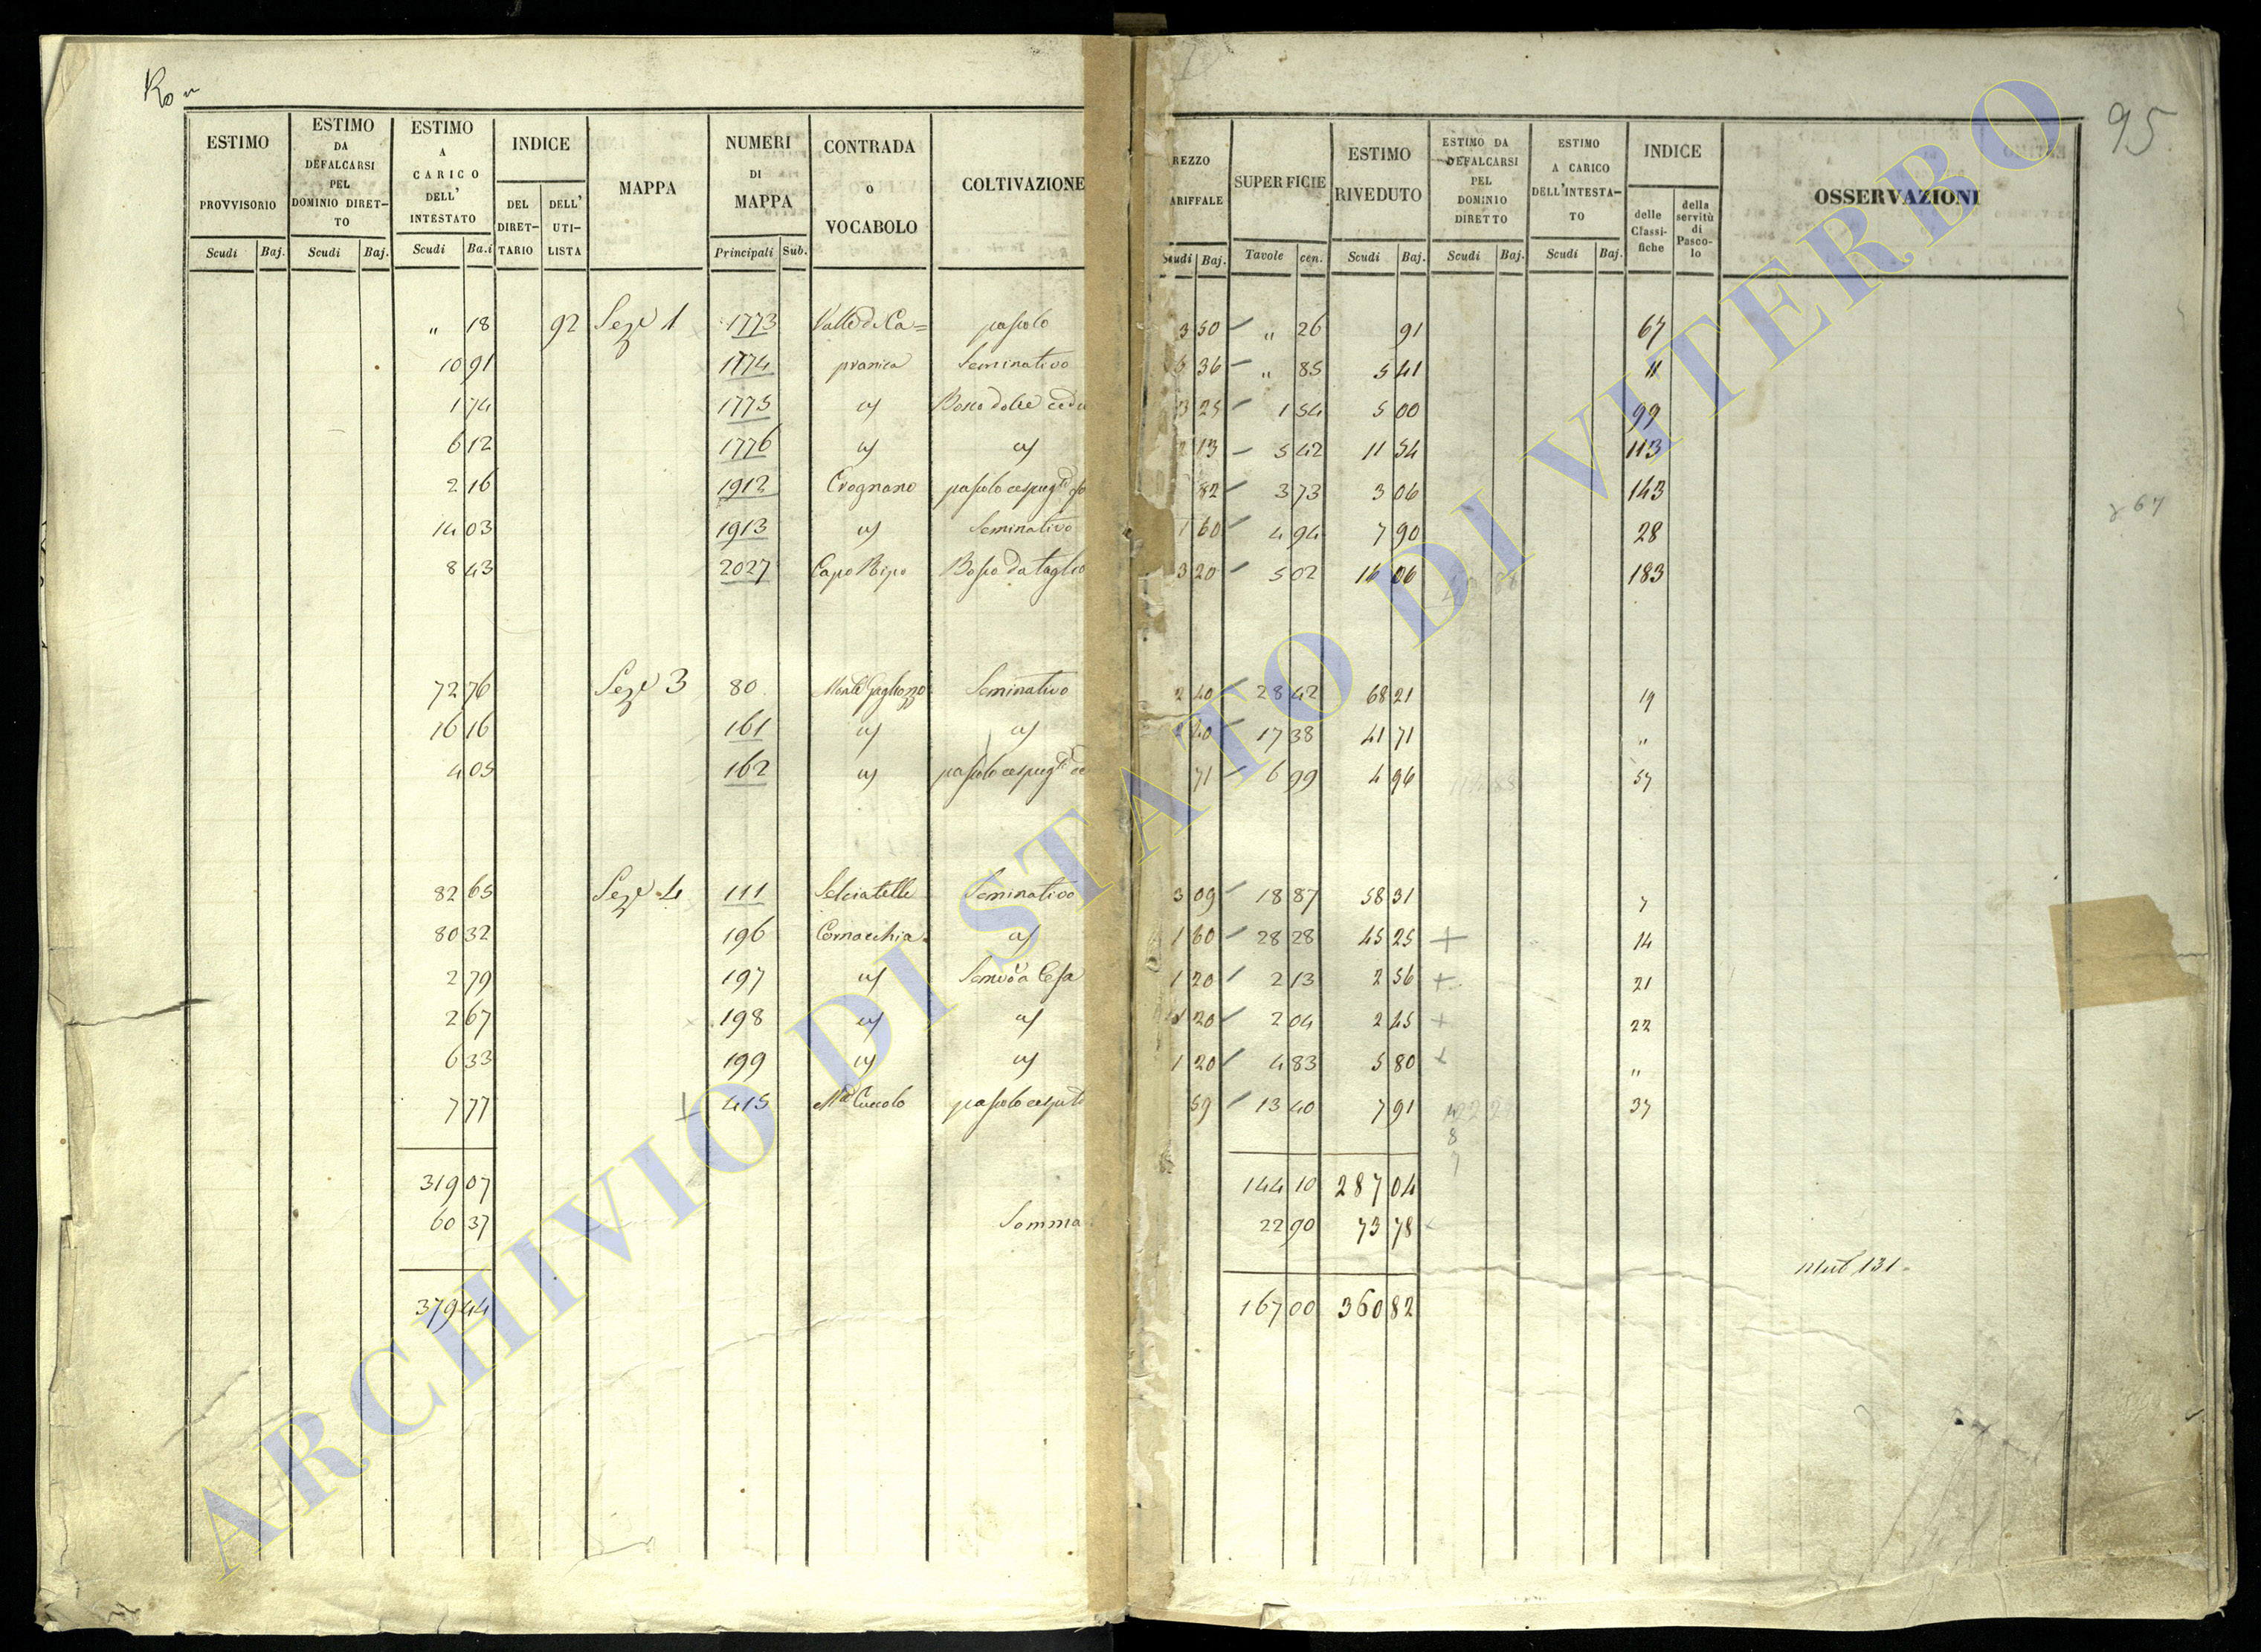 Ro
95
ESTIMO PROVVISORIO
ESTIMO DA DEFALCARSI PEL DOMINIO DIRET–TO
ESTIMO A CARICO DELL' INTESTATO
INDICE
DEL DIRET–TARIO
DELL' UTI–LISTA
MAPPA
NUMERI DI MAPPA
CONTRADA O VOCABOLO
COLTIVAZIONE
REZZO ARIFFALE
SUPERFICIE
ESTIMO RIVEDUTO
ESTIMO DA DEFALCARSI PEL DOMINIO DIRETTO
ESTIMO A CARICO DELL'INTESTA–TO
INDICE
delle Classi–fiche
della servitù di Pasco–lo
OSSERVAZIONI
Scudi Baj. Scudi Baj. Scudi Ba.i Principali Sub. Scudi Baj. Tavole cen. Scudi Baj. Scudi Baj. Scudi Baj.
" 18 92 Seze 1 1773 Valle di Ca= pascolo 3 50 " 26 91 67
10 91 1774 pranica Seminativo 36 " 85 5 41 11
1 74 1775 Bosco dolce cedu 3 25 1 54 5 00 99
6 12 1776 2 13 5 42 11 54 113
2 16 1912 Crognano pascolo cespugto 82 3 73 3 06 143
14 03 1913 Seminativo 1 60 4 94 7 90 28
8 43 2027 Capo Ripo Bosco da taglio 3 20 5 02 16 06 183
67
72 76 Seze 3 80 Monte Gagliozzo Seminativo 2 40 28 42 68 21 19
16 16 161 40 17 38 41 71 "
4 05 162 pascolo cespugto 71 6 99 4 96 57
82 65 Seze 4 111 Selciatelle Seminativo 3 09 18 87 58 31 7
80 32 196 Cornacchia 1 60 28 28 45 25 + 14
2 79 197 Semivo a Cesa 1 20 2 13 2 56 + 21
2 67 198 1 20 2 04 2 45 + 22
6 33 199 1 20 4 83 5 80 + "
7 77 + 415 Mte Cuccolo pascolo cesputo 59 13 40 7 91 37
8
319 07 144 10 287 04
60 37 Somma 22 90 73 78
Mut 131
379 44 167 00 360 82
ARCHIVIO DI STATO DI VITERBO